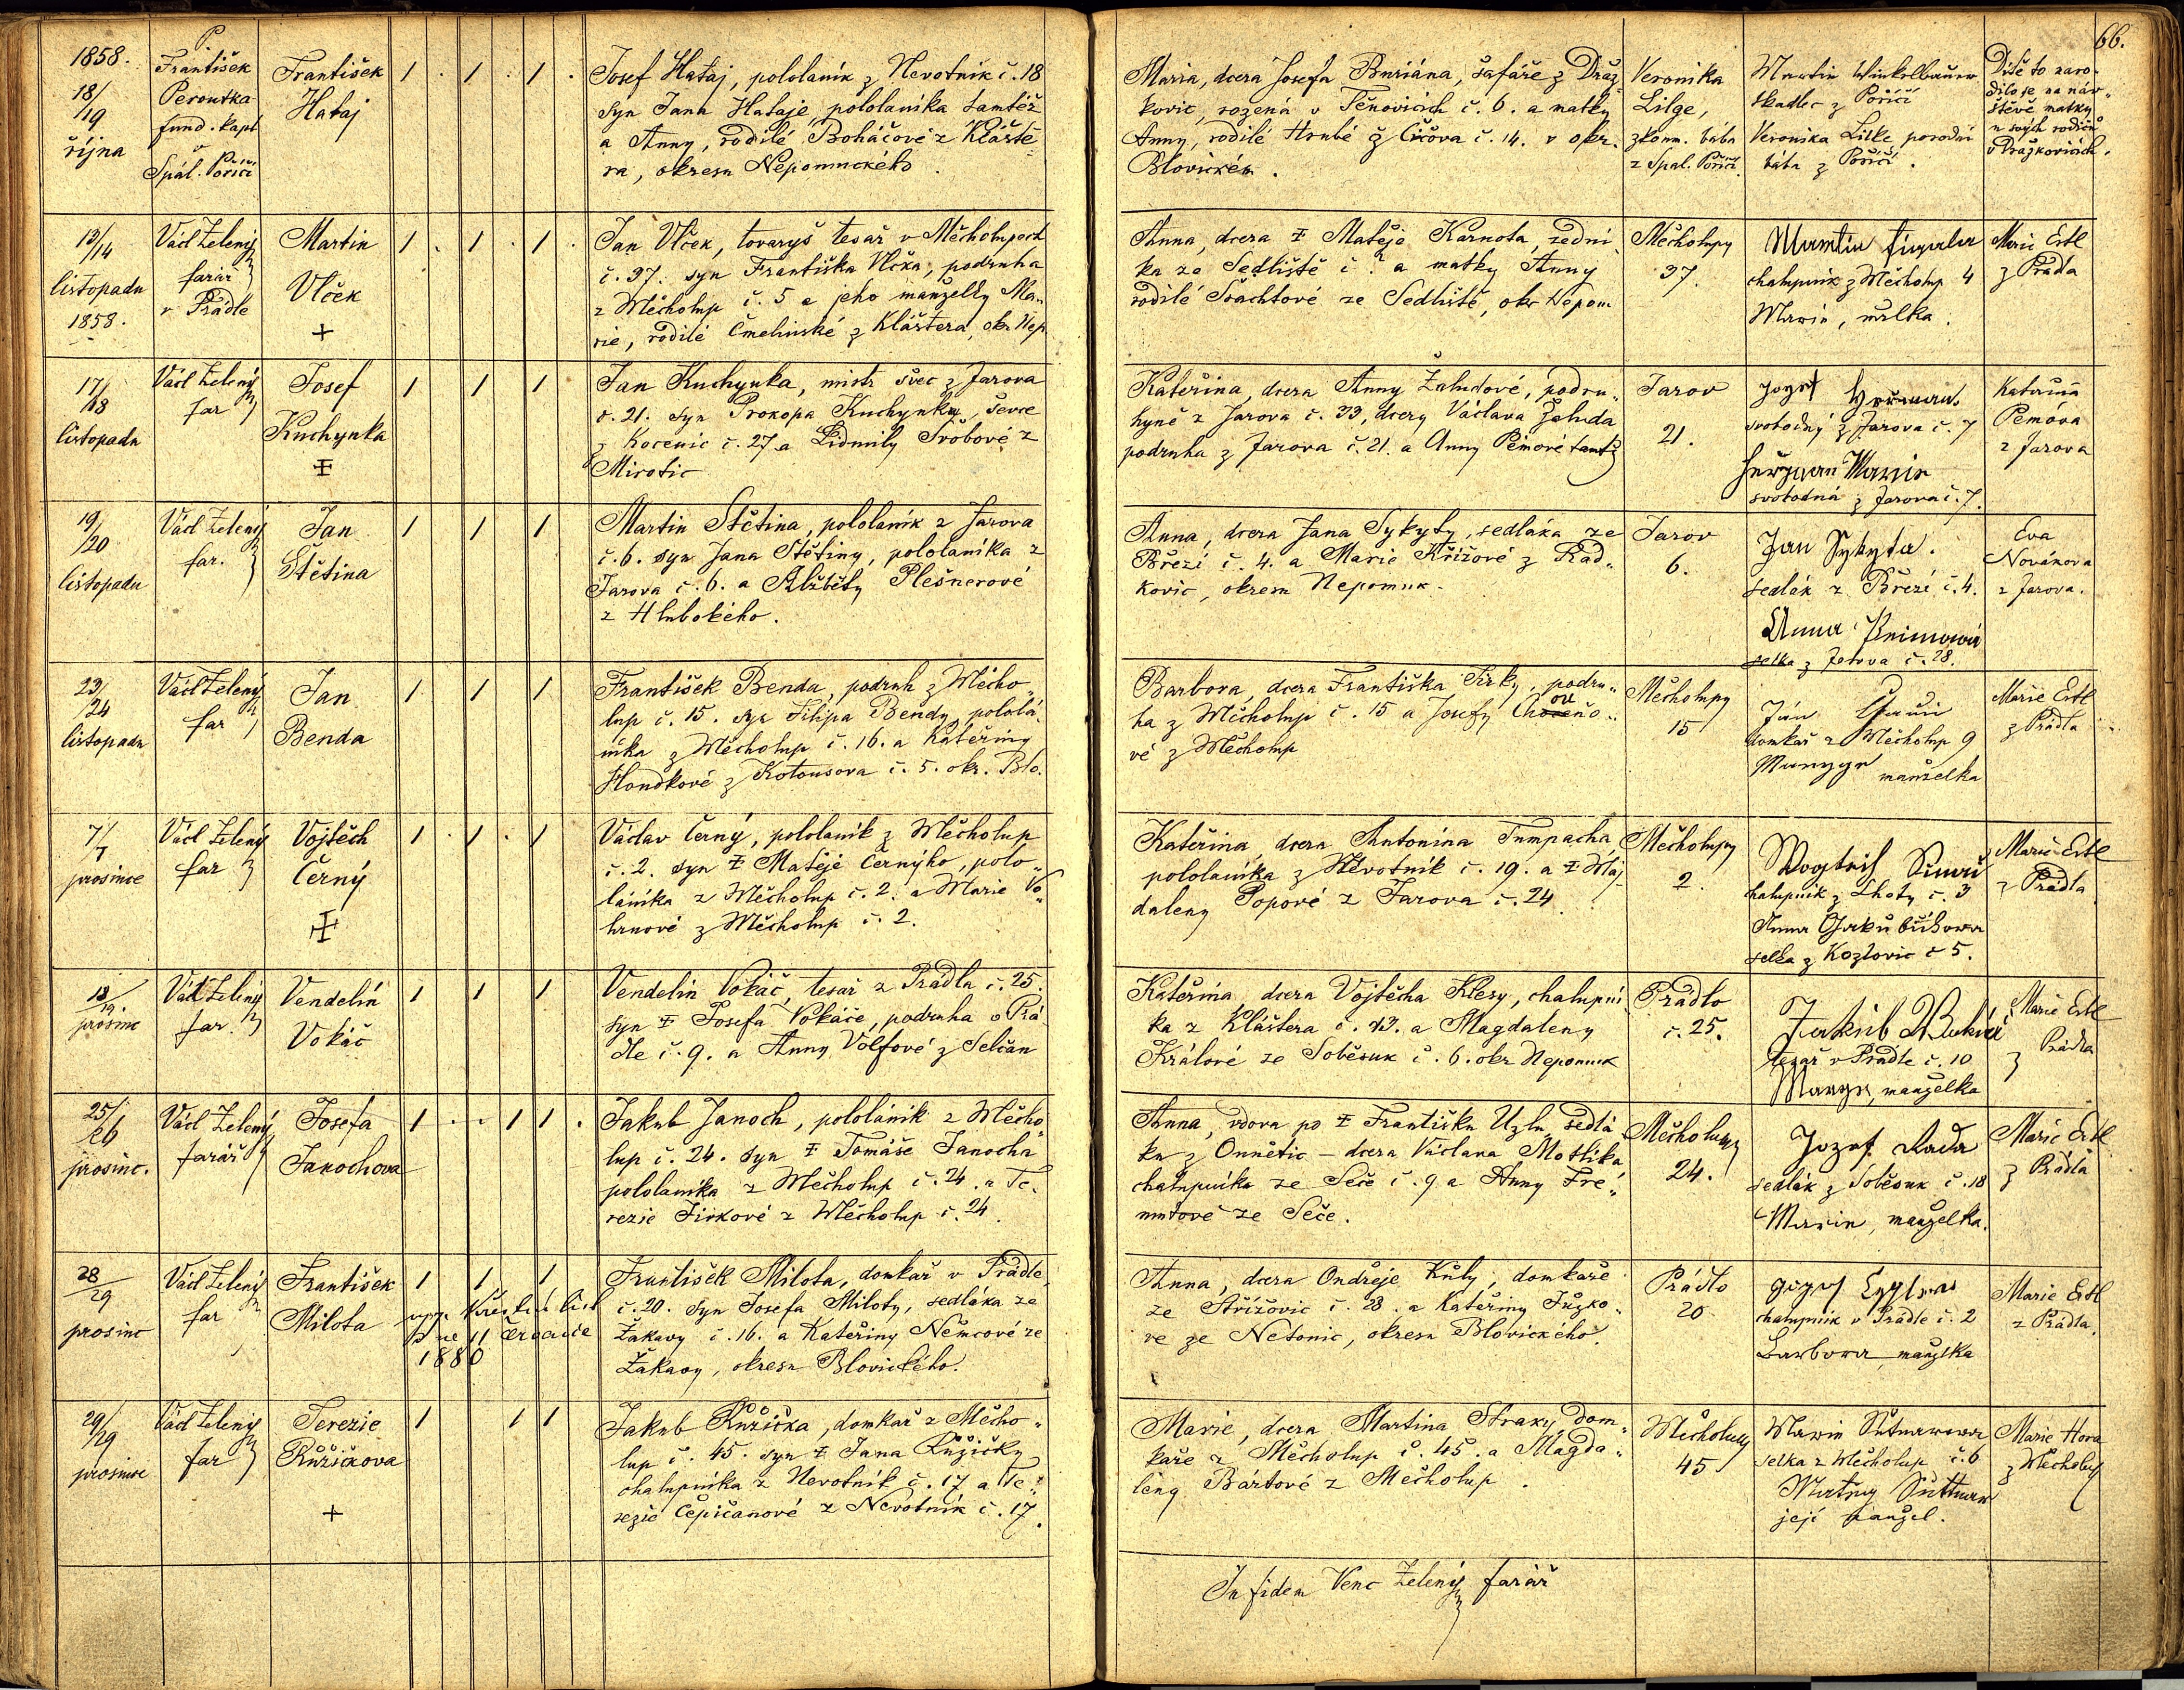 66.
1858.
18/19
října
P
František
Peroutka
fund. kapl
v
Spál. Poříčí
František
Hataj
1 . 1 . 1 .
Josef Hataj, pololaník z Nevotník č. 18
syn Jana Hataje, pololaníka tamtéž
a Anny, rodilé Boháčové z Klášte=
ra, okresu Nepomuckého.
Maria, dcera Josefa Buriána, šafáře z Dráž=
kovic, rozená v Těnovicích č. 6. a matky
Anny, rodilé Hrubé z Čížova č. 14. v okr.
Blovickém.
Veronika
Lilge,
zkouš. bába
z Spal. Poříčí.
Martin Winkelbauer
tkadlec z Poříčí
Veronika Lilke porodní
bába z Poříčí.
Dítě to naro-
dilo se na náv-
štěvě matky
u svých rodičů
v Dražkovicích.
13/14
listopadu
1858.
Václ Zelený
farář
v Prádle
Martin
Vlček
+
1 . 1 . 1 .
Jan Vlček, tovaryš tesař v Měcholupech
č. 37. syn Františka Vlčka, podruha
z Měcholup č. 5 a jeho manželky Ma-
rie, rodilé Čmelinské z Kláštera, okr. Nep
Anna, dcera ‡ Matěje Karnota, zední-
ka ze Sedliště č. 2 a matky Anny
rodilé Šrachtové ze Sedliště, okr Nepom
Měcholupy
37.
Martin
chalupník z Měcholup 4
Marie, málka.
Marie Ertl
z Prádla
17/18
listopadu
Václ Zelený
far
Josef
Kuchynka
‡
1 1 1
Jan Kuchynka, mistr švec z Jarova
č. 21. syn Prokopa Kuchynky, ševce
z Kocenic č. 27 a Lidmily Švóbové z
Mirotic
Kateřina, dcera Anny Žaludové, podru-
hyně z Jarova č. 33, dcery Václava Žaluda
podruha z Jarova č. 21. a Anny Pěmové tamt
Jarov
21.
Jozef Heřman
svobodný z Jarova č. 7
Heřman Marie
svobodná z Jarova č. 7.
Kateřina
Pemóva
z Jarova
19/20
listopadu
Václ Zelený
far.
Jan
Štětina
1 1 1
Martin Štětina, pololaník z Jarova
č. 6. syn Jana Štětiny, pololaníka z
Jarova č. 6. a Alžběty Plešnerové
z Hlubokého.
Anna, dcera Jana Sykyty, sedláka ze
Březí č. 4. a Marie Křížové z Rad-
kovic, okresu Nepomuk.
Jarov
6.
Jan Sykyta.
sedlák z Březí č. 4.
Anna
selka z Jarova č. 28.
Eva
Novákova
z Jarova.
23/24
listopadu
Václ Zelený
far
Jan
Benda
1 1 1
František Benda, podruh z Měcho-
lup č. 15. syn Filipa Bendy, pololá-
níka z Měcholup č. 16. a Kateřiny
Hondkové z Kotousova č. 5. okr. Blo.
Barbora, dcera Františka Jirky, podru-
ha z Měcholup č. 15 a Josefy
vé z Měcholup
Měcholupy
15
Ján
domkář z Měcholup 9
manželka
Marie Ertl
z Prádla
7/7
prosince
Václ Zelený
far
Vojtěch
Černý
‡
1 . 1 . 1
Václav Černý, pololaník z Měcholup
č. 2. syn ‡ Matěje Černýho, polo-
láníka z Měcholup č. 2. a Marie Vo-
hrnové z Měcholup č. 2.
Kateřina, dcera Antonína Tumpacha,
pololaníka z Nevotník č. 19. a ‡ Maj-
daleny Popové z Jarova č. 24.
Měcholupy
2.
chalupník z Lhoty č. 3
Anna
selka z Kozlovic č 5.
Marie Ertl
z Prádla
18/19
prosinc
Václ Zelený
far.
Vendelín
Vokáč
1 1 1
Vendelín Vokáč, tesař z Prádla č. 25.
syn ‡ Josefa Vokáče, podruha v Prá-
dle č. 9. a Anny Volfové z Selčan
Kateřina, dcera Vojtěcha Klesy, chalupní-
ka z Kláštera č. 13. a Magdaleny
Králové ze Soběsuk č. 6. okr Nepomuk
Prádlo
č. 25.
Jakub
tesař v Prádle č. 10
manželka
Marie Ertl
z Prádla
25/26
prosinc.
Václ Zelený
farář
Josefa
Janochova
1 . . 1 1 .
Jakub Janoch, pololáník z Měcho-
lup č. 24. syn ‡ Tomáše Janocha
pololaníka z Měcholup č. 24. a Te-
rezie Jirkové z Měcholup č. 24.
Anna, vdova po ‡ Františku Uzlu, sedlá-
ku z Onnětic – dcera Václava Motlíka,
chalupníka ze Seče č. 9 a Anny Fré-
mutové ze Seče.
Měcholupy
24.
Jozef Rada
sedlák z Soběsuk č. 18
Marie, manželka.
Marie Ertl
z Prádla
28/29
prosinc
Václ Zelený
far
František
Milota
1 1 1
vyp. Křestní list
dne 11 Července
1880
František Milota, domkař v Prádle
č. 20. syn Josefa Miloty, sedláka ze
Žákavy č. 16. a Kateřiny Němcové ze
Žákavy, okresu Blovického.
Anna, dcera Ondřeje Kůly, domkáře
ze Střížovic č. 28. a Kateřiny Jůzko-
vé ze Netonic, okresu Blovického.
Prádlo
20.
Jozef
chalupník v Prádle č. 2
Barbora manželka
Marie Ertl
z Prádla.
29/29
prosince
Václ Zelený
far
Terezie
Růžičkova
+
1 1 1
Jakub Růžička, domkář z Měcho-
lup č. 45. syn ‡ Jana Růžičky
chalupníka z Nevotník č. 17 a Te-
rezie Čepičanové z Nevotník č. 17.
Marie, dcera Martina Straky, dom-
káře z Měcholup č. 45. a Magda-
lény Bártové z Měcholup.
Měcholupy
45
Marie
selka z Měcholup č. 6
Matěj Suttnar
její manžel.
Marie Hora
z Měcholup
In fidem Venc Zelený farář